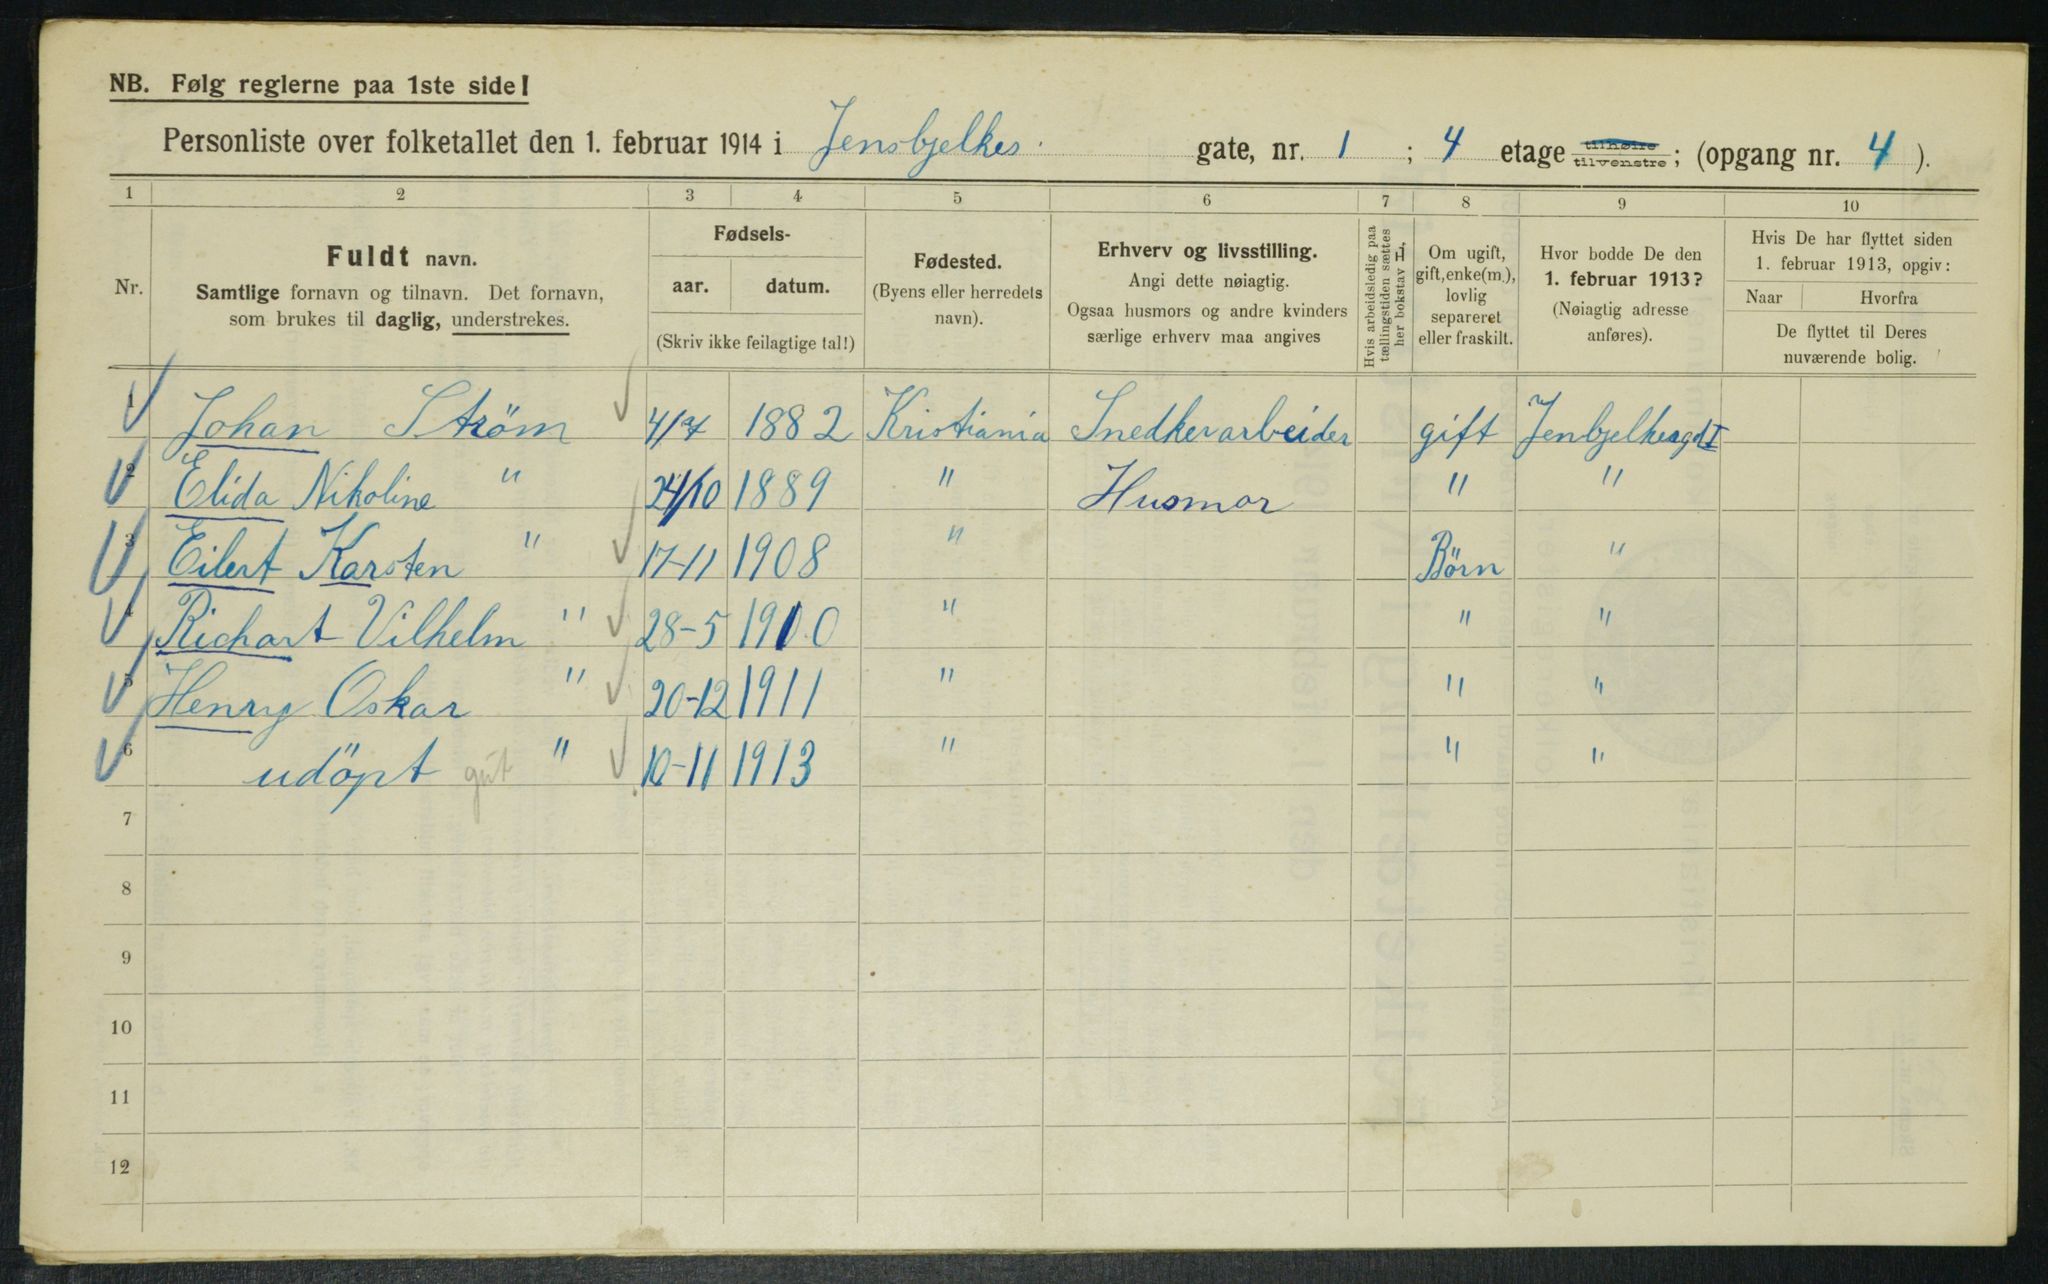 NB. Følg reglerne paa 1ste side!
Personliste over folketallet den 1. februar 1914 i Jensbjelkes. gate, nr. 1 ; 4 etage tilhøire tilvenstre; (opgang nr. 4 ).
1 2 3 4 5 6 7 8 9 10
Nr.
Fuldt navn.
Samtlige fornavn og tilnavn. Det fornavn,
som brukes til daglig, understrekes.
Fødsels-
aar. datum.
(Skriv ikke feilagtige tal!)
Fødested.
(Byens eller herredets
navn).
Erhverv og livsstilling.
Angi dette nøiagtig.
Ogsaa husmors og andre kvinders
særlige erhverv maa angives
Hvis arbeidsledig paa
tællingstiden sættes
her bokstav L,
Om ugift,
gift, enke(m.),
lovlig
separeret
eller fraskilt.
Hvor bodde De den
1. februar 1913?
(Nøiagtig adresse
anføres).
Hvis De har flyttet siden
1. februar 1913, opgiv:
Naar Hvorfra
De flyttet til Deres
nuværende bolig.
1 Johan Ström 4/7 1882 Kristiania Snedkerarbeider gift Jenbjelkesgdt 1
2 Elida Nikoline " 24/10 1889 " Husmor " "
3 Eilert Karsten " 17-11 1908 " Börn "
4 Richart Vilhelm " 28-5 1910 " " "
5 Henry Oskar " 20-12 1911 " " "
6 udöpt gut " 10-11 1913 " " "
7
8
9
10
11
12